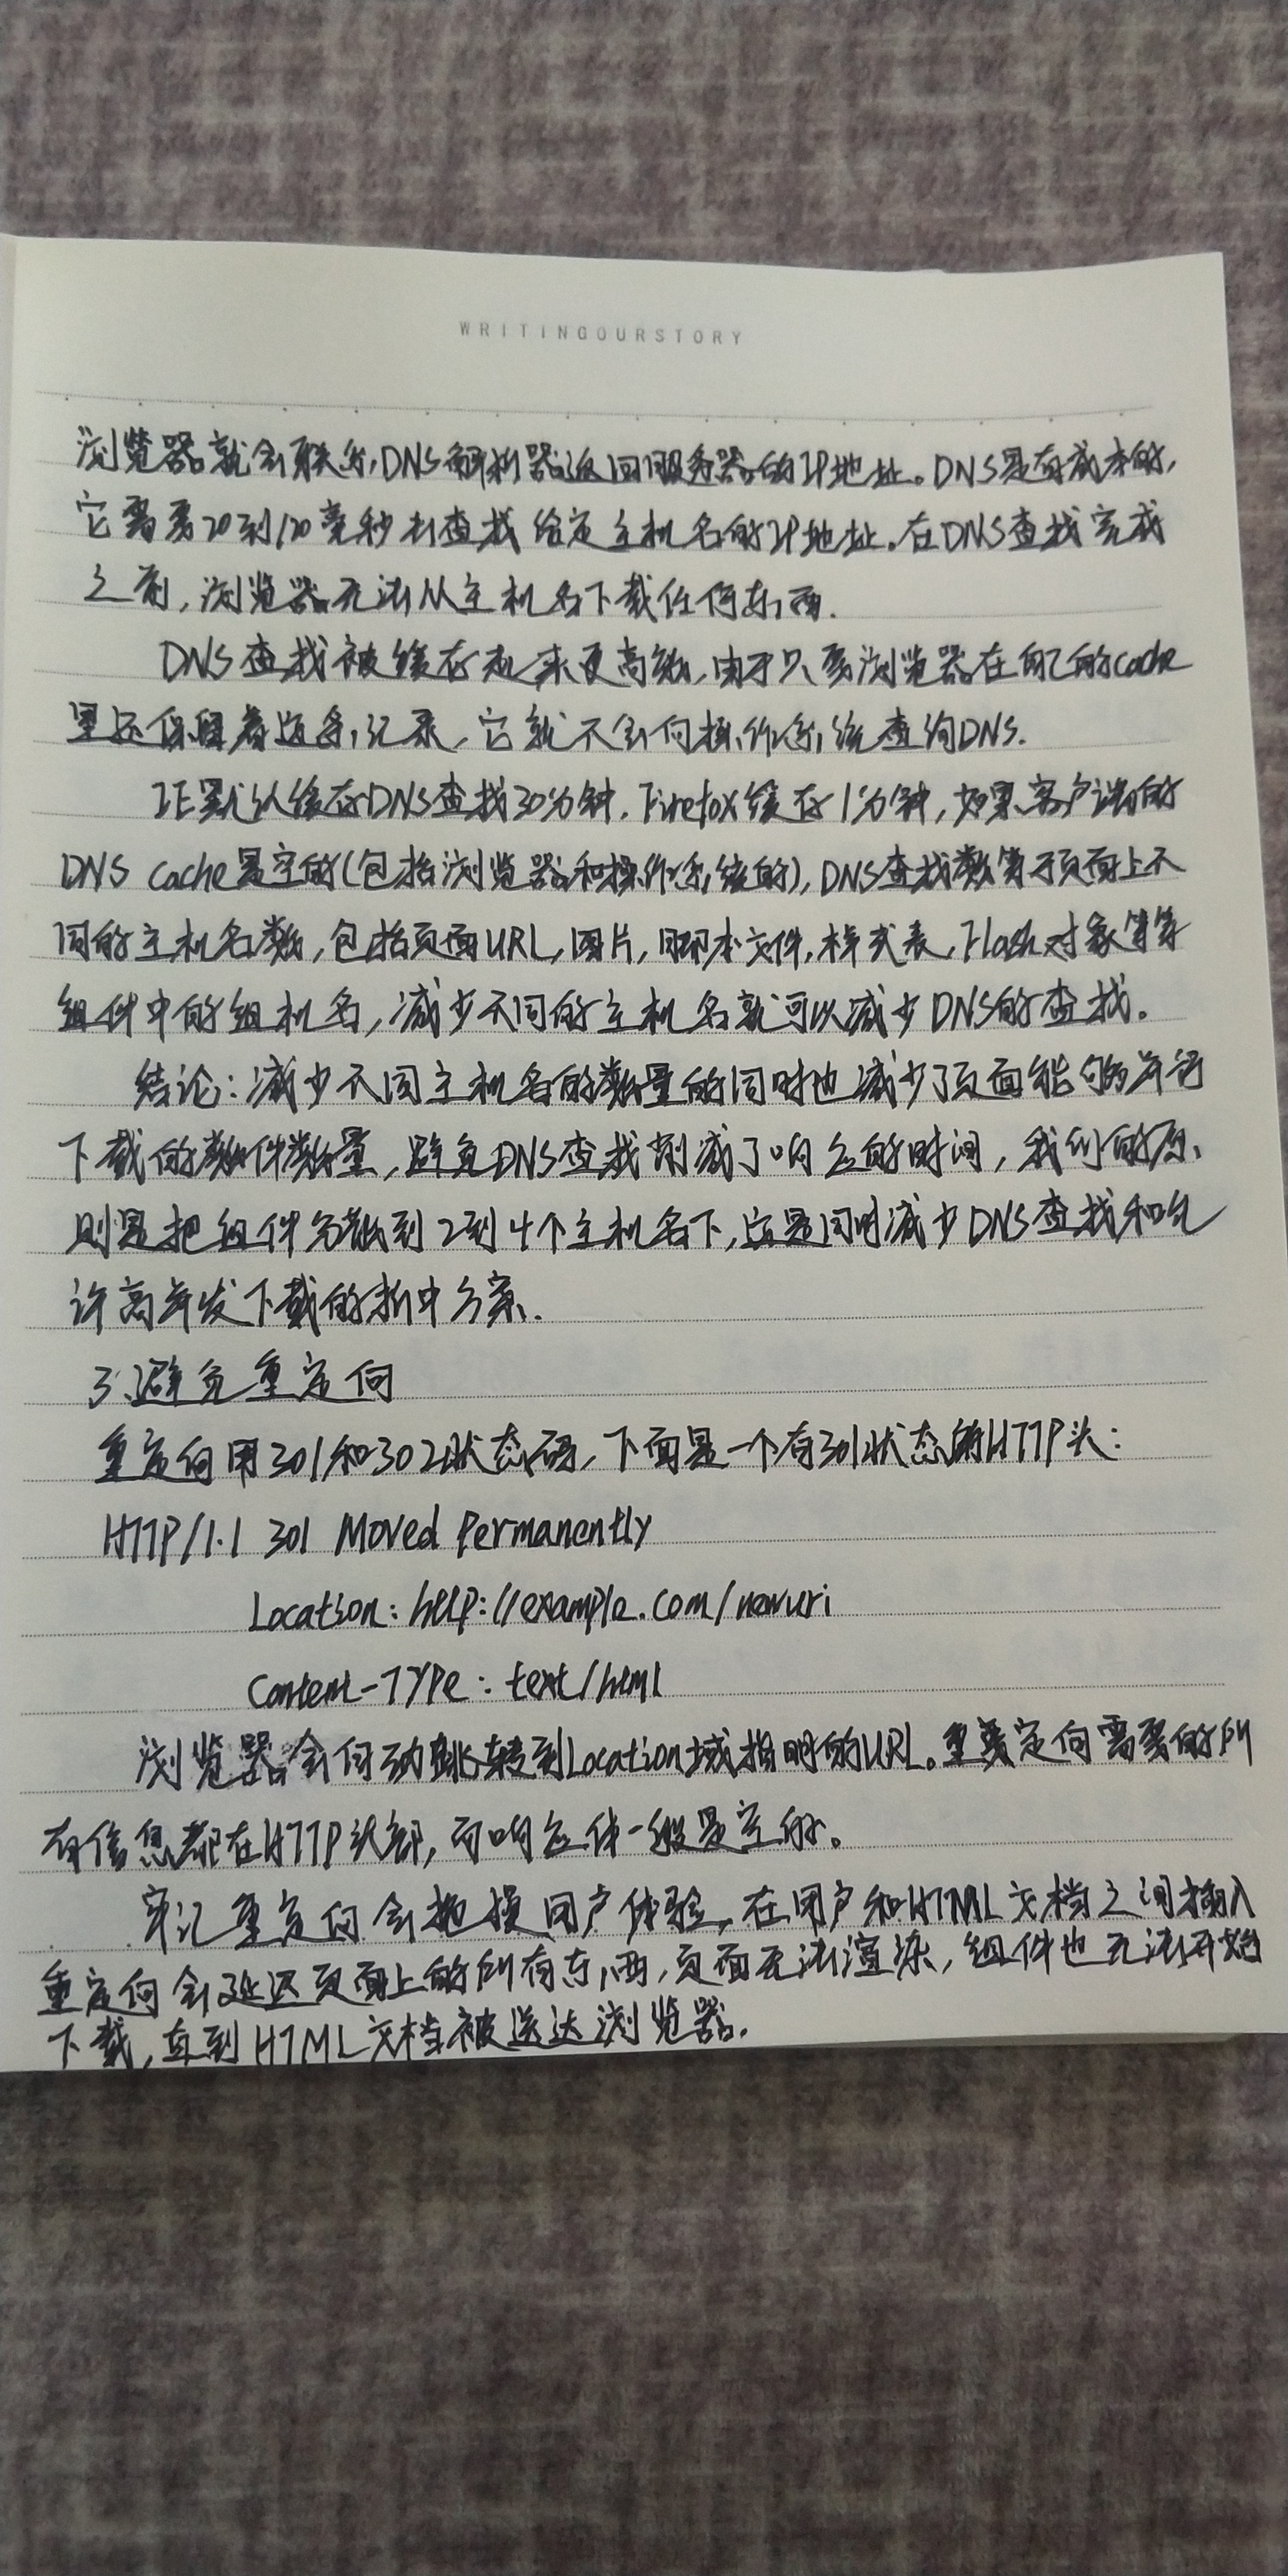 WRITINGOURSTORY
浏览器就会联系,DNS解析器返回服务器的IP地址。DNS是有成本的,
它需要20到120毫秒去查找给定主机名的IP地址.在DNS查找完成
之前,浏览器无法从主机名下载任何东西.
DNS查找被缓存起来更高效,由于只要浏览器在自己的cache
里还保留着这条记录,它就不会向操作系统查询DNS.
IE默认缓存DNS查找30分钟,Firefox缓存1分钟,如果客户端的
DNS cache是空的(包括浏览器和操作系统的),DNS查找数等于页面上不
同的主机名数,包括页面URL,图片,脚本文件,样式表,Flash对象等等
组件中的组机名,减少不同的主机名就可以减少DNS的查找。
结论:减少不同主机名的数量的同时也减少了页面能够并行
下载的数件数量,避免DNS查找削减了响应的时间,我们的原
则是把组件分散到2到4个主机名下,这是同时减少DNS查找和允
许高并发下载的折中方案.
3.避免重定向
重定向用301和302状态码,下面是一个有301状态的HTTP头:
HTTP/1.1 301 Moved Permanently
Location: http://example.com/newuri
Content-Type: text/html
浏览器会自动跳转到Location域指明的URL。重定向需要的所
有信息都在HTTP头部,而响应体一般是空的。
牢记重定向会拖慢用户体验,在用户和HTML文档之间插入
重定向会延迟页面上的所有东西,页面无法渲染,组件也无法开始
下载,直到HTML文档被送达浏览器.